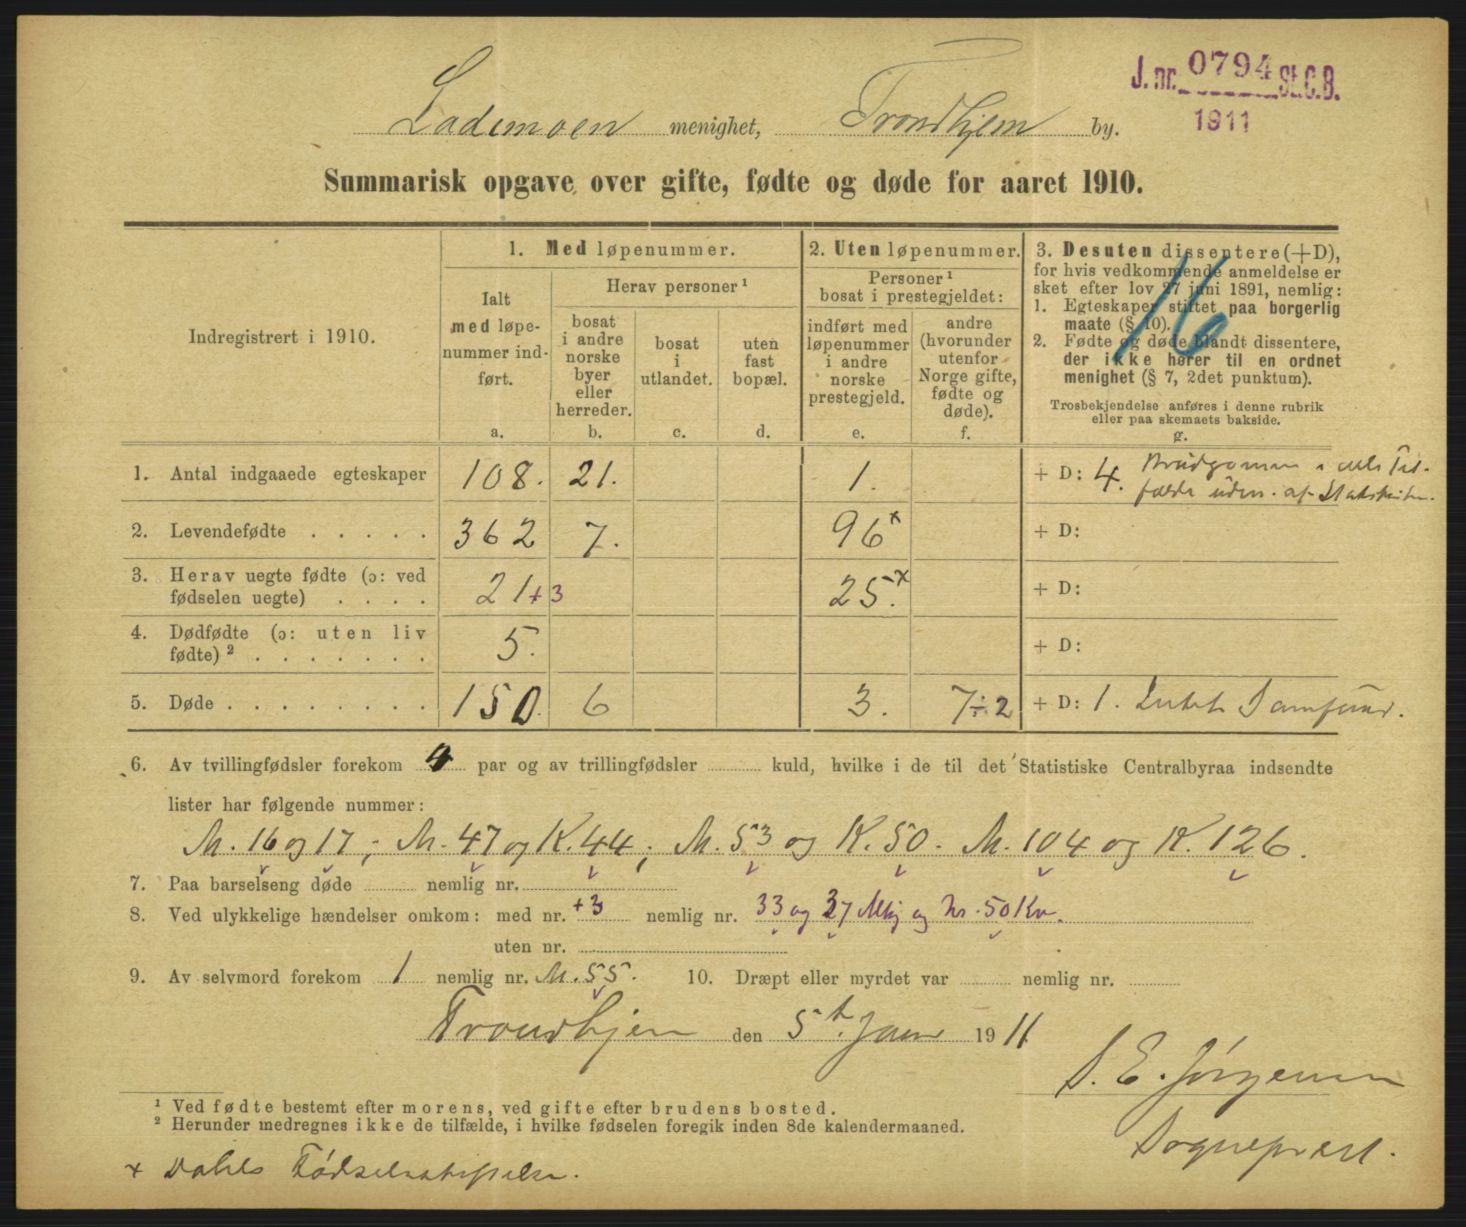 J. nr. 0794 St.C.B.
1911
Lademoen menighet, Trondhjem by.
Summarisk opgave over gifte, fødte og døde for aaret 1910.
Indregistrert i 1910.
1. Med løpenummer.
Ialt
med løpe-
nummer ind-
ført.
a.
Herav personer ¹
bosat
i andre
norske
byer
eller
herreder.
b.
bosat
i
utlandet.
c.
uten
fast
bopæl.
d.
2. Uten løpenummer.
Personer ¹
bosat i prestegjeldet:
indført med
løpenummer
i andre
norske
prestegjeld.
e.
andre
(hvorunder
utenfor
Norge gifte,
fødte og
døde).
f.
3. Desuten dissentere (+D),
for hvis vedkommende anmeldelse er
sket efter lov 27 juni 1891, nemlig:
1. Egteskaper stiftet paa borgerlig
maate (§ 10).
2. Fødte og døde blandt dissentere,
der ikke hører til en ordnet
menighet (§ 7, 2det punktum).
Trosbekjendelse anføres i denne rubrik
eller paa skemaets bakside.
g.
16
1. Antal indgaaede egteskaper 108. 21. 1. + D: 4. Brudgommen i alle Til-
fælde uden. af Statskirken.
2. Levendefødte . . . . . 362 7. 96 x + D:
3. Herav uegte fødte (ɔ: ved
fødselen uegte) . . . . 21 + 3 25. x + D:
4. Dødfødte (ɔ: uten liv
fødte) ² . . . . . . . 5. + D:
5. Døde . . . . . . . . 150. 6 3. 7 ÷ 2 + D: 1. Luth. Samfund.
6. Av tvillingfødsler forekom 4 par og av trillingfødsler kuld, hvilke i de til det Statistiske Centralbyraa indsendte
lister har følgende nummer:
M. 16 og 17; M. 47 og K. 44; M. 53 og K. 50. M. 104 og K. 126.
7. Paa barselseng døde nemlig nr.
8. Ved ulykkelige hændelser omkom: med nr. +3 nemlig nr. 33 og 37 Mk og nr. 50 Kv.
uten nr.
9. Av selvmord forekom 1 nemlig nr. M. 55. 10. Dræpt eller myrdet var nemlig nr.
Trondhjem den 5t. Janr 1911
S. E. Jörgensen
Sogneprest.
¹ Ved fødte bestemt efter morens, ved gifte efter brudens bosted.
² Herunder medregnes ikke de tilfælde, i hvilke fødselen foregik inden 8de kalendermaaned.
x Dahls Födselsstiftelse.